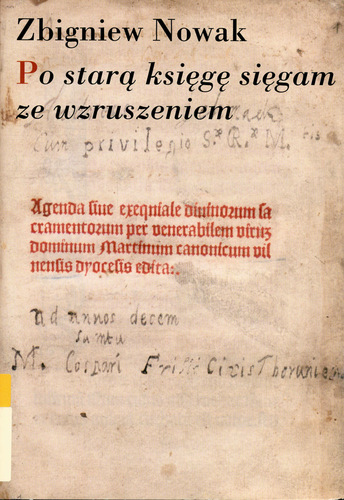 Zbigniew Nowak
Po starą księgę sięgam
ze wzruszeniem
Cum privilegio S. R. M.
Agenda siue exequiale diuinorum sa
cramentorum per venerabilem virum
dominum Martinum canonicum vil
nensis dyocesis edita:.
ad annos decem
sumtu
M. Caspari Frisii Civis Thorunien